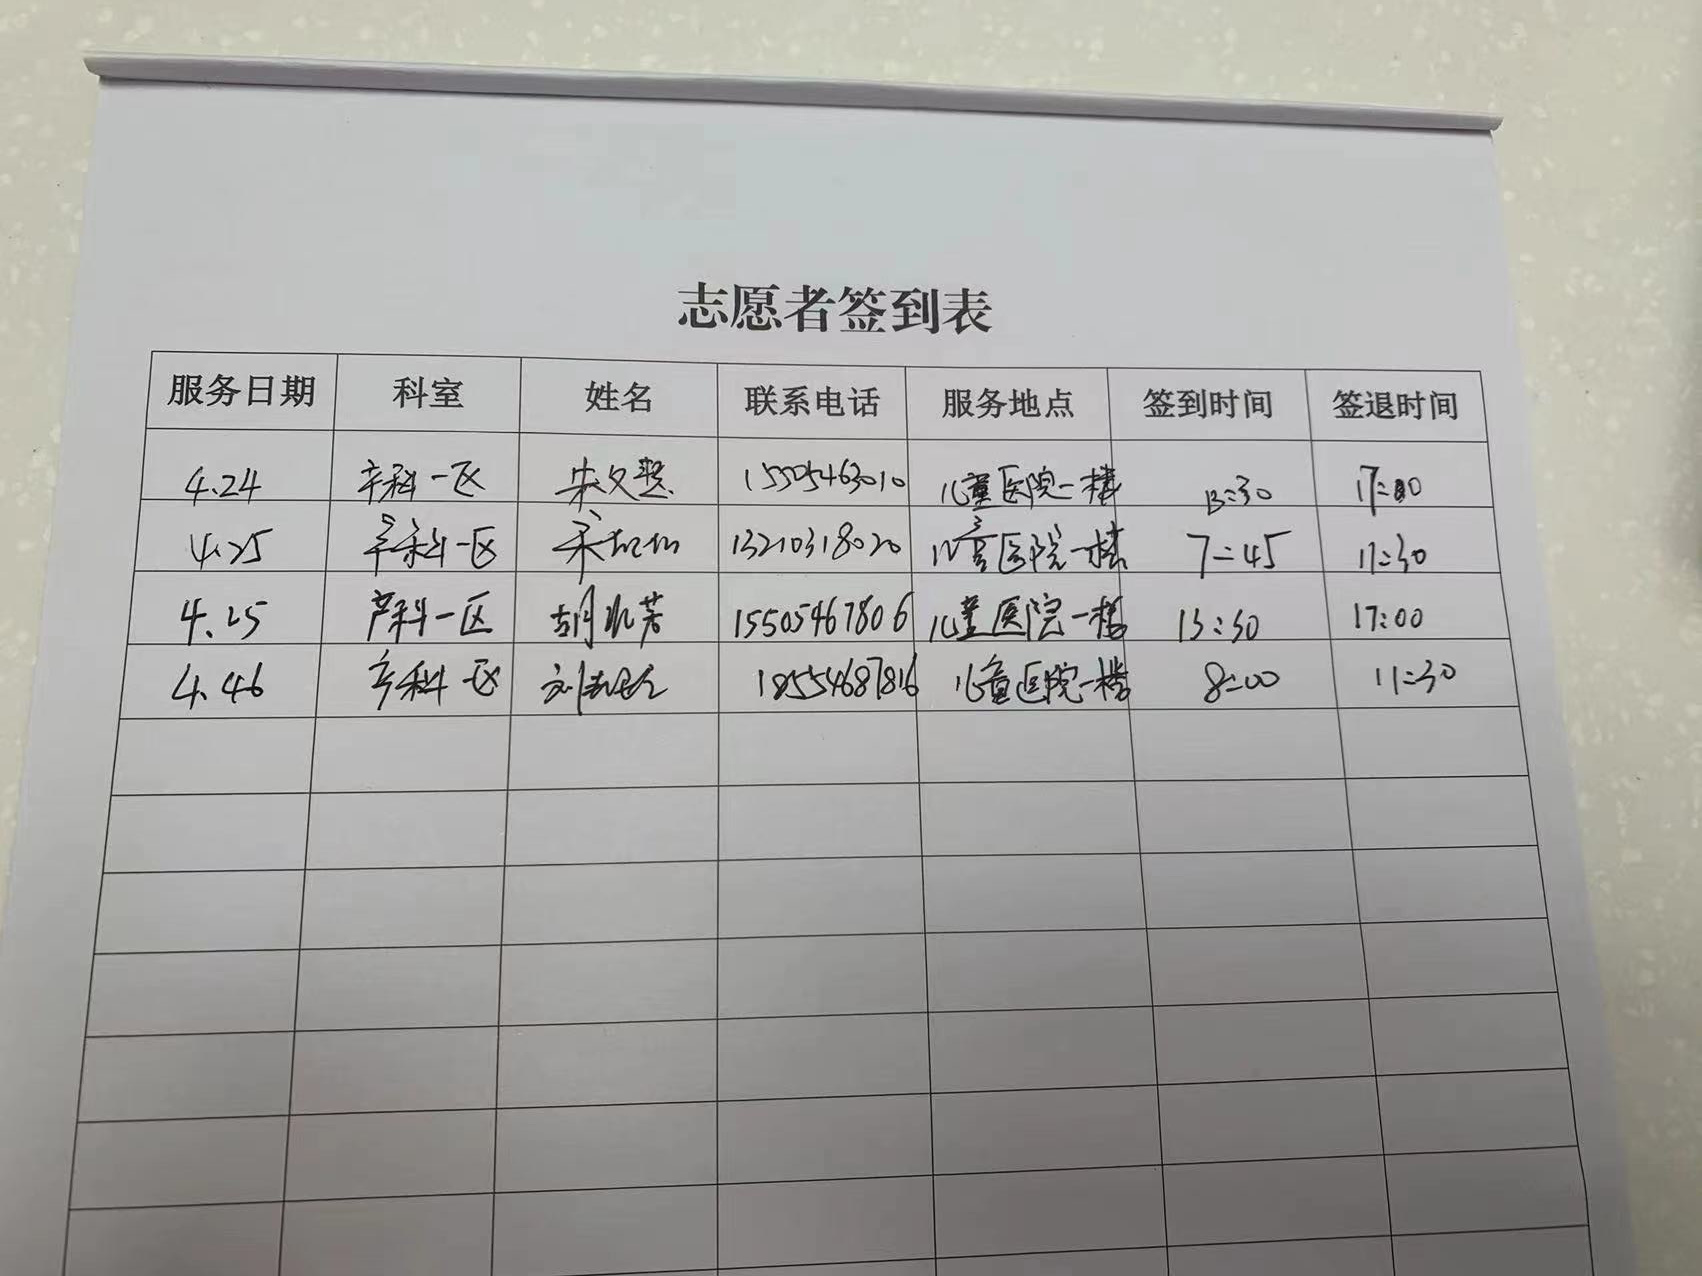 志愿者签到表
服务日期 科室 姓名 联系电话 服务地点 签到时间 签退时间
4.24 产科一区 15505463010 儿童医院一楼 13:30 17:00
4.25 产科一区 13210318020 儿童医院一楼 7:45 11:30
4.25 产科一区 胡秋芳 15505467806 儿童医院一楼 13:30 17:00
4.46 产科一区 18554687816 儿童医院一楼 8:00 11:30